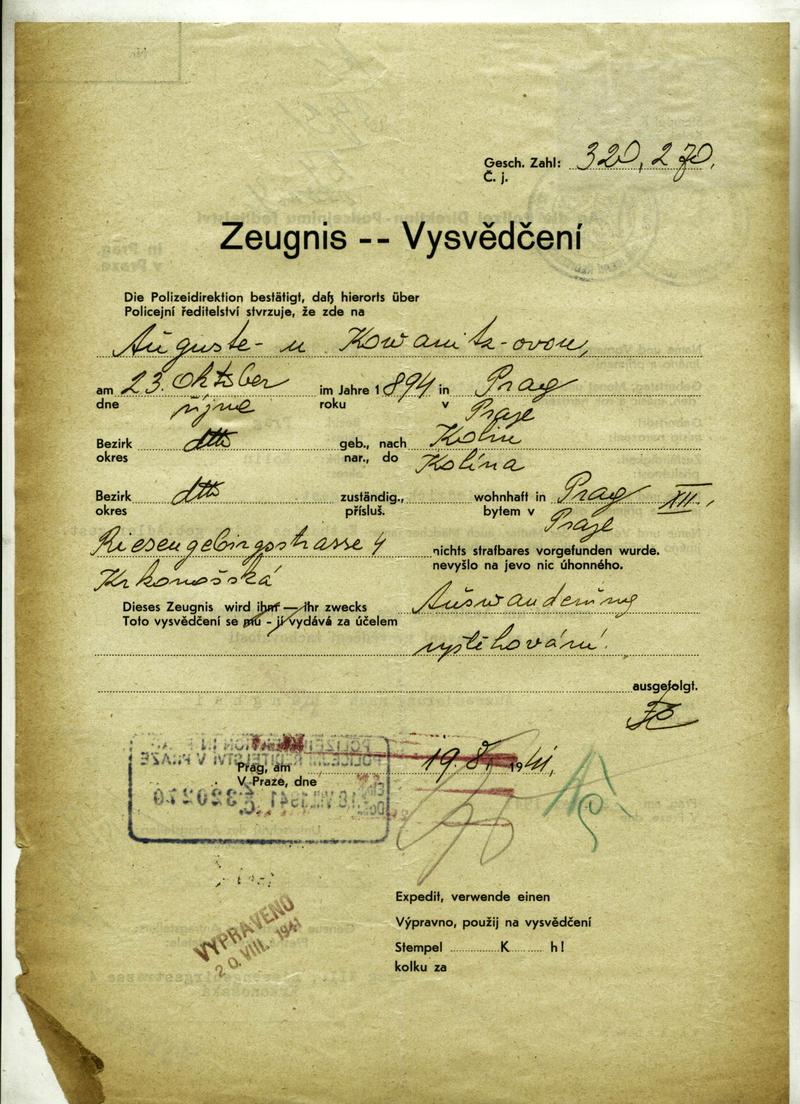 Gesch. Zahl: 320,270,
Č. j.
Zeugnis -- Vysvědčení
Die Polizeidirektion bestätigt, daß hierorts über
Policejní ředitelství stvrzuje, že zde na
Auguste-u Kowanitz-ovou,
am 23. Oktober im Jahre 1894 in Prag
dne října roku v Praze
Bezirk dtto geb., nach Kolin
okres nar., do Kolína
Bezirk dtto zuständig., wohnhaft in Prag XII.,
okres přísluš. bytem v Praze
Riesengebirgsstrasse 4 nichts strafbares vorgefunden wurde.
Krkonošská nevyšlo na jevo nic úhonného.
Dieses Zeugnis wird ihm — ihr zwecks Auswanderung
Toto vysvědčení se mu - jí vydává za účelem
vystěhování.
ausgefolgt.
Prag, am 19.8. 1941,
V Praze, dne
POLICEJNÍ ŘEDITELSTVÍ V PRAZE
18.VIII.1941 320270
VYPRAVENO
20. VIII. 1941
Expedit, verwende einen
Výpravno, použij na vysvědčení
Stempel K h!
kolku za